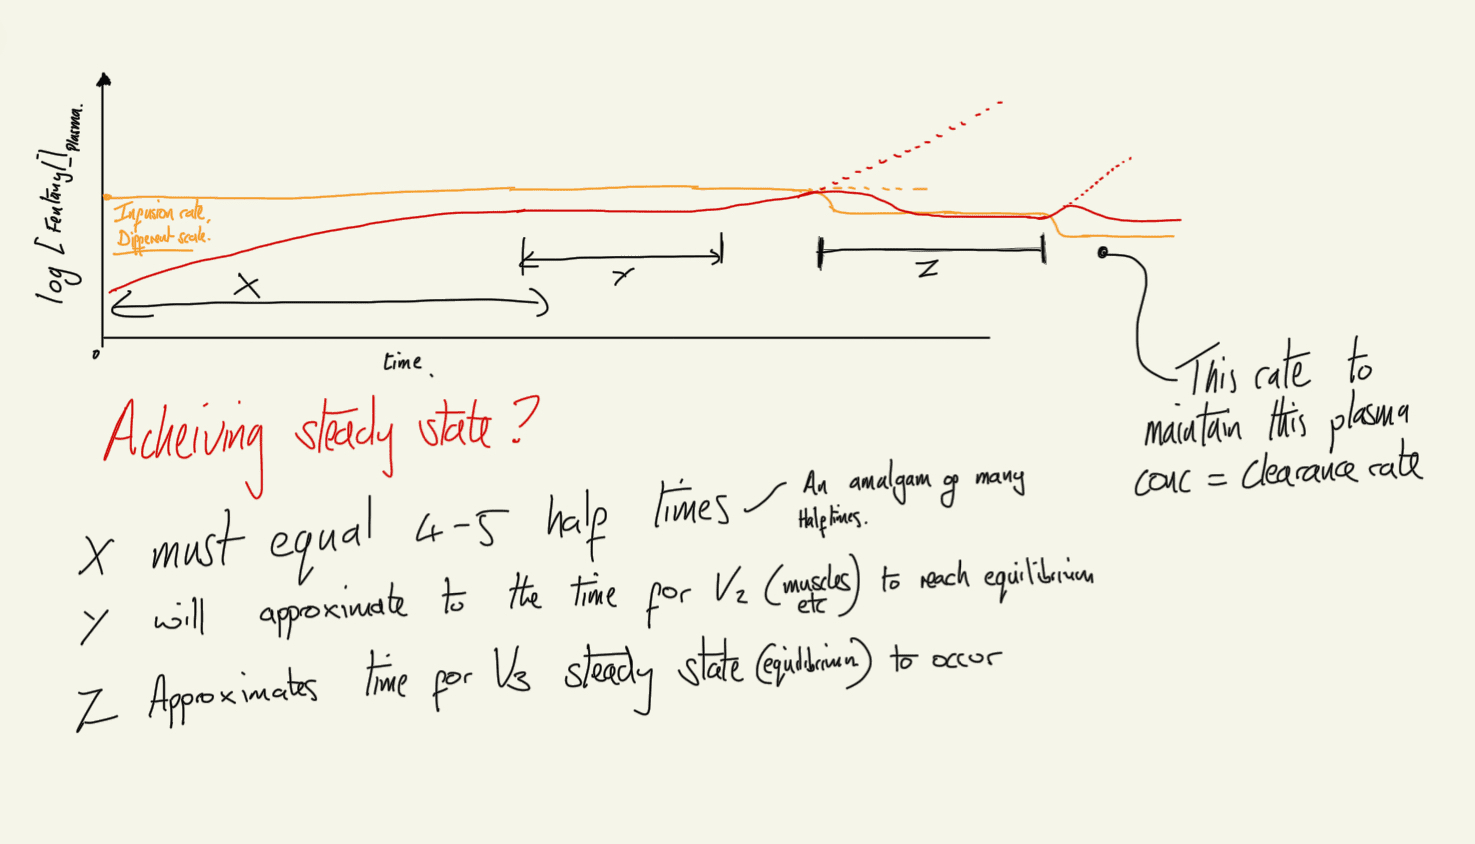 log [Fentanyl] plasma.
Infusion rate.
Different scale.
X
Y
Z
0
time.
This rate to
maintain this plasma
conc = Clearance rate
Acheiving steady state?
X must equal 4-5 half times
An amalgam of many
Halftimes.
Y will approximate to the time for V2 (muscles etc) to reach equilibrium
Z Approximates time for V3 steady state (equilibrium) to occur